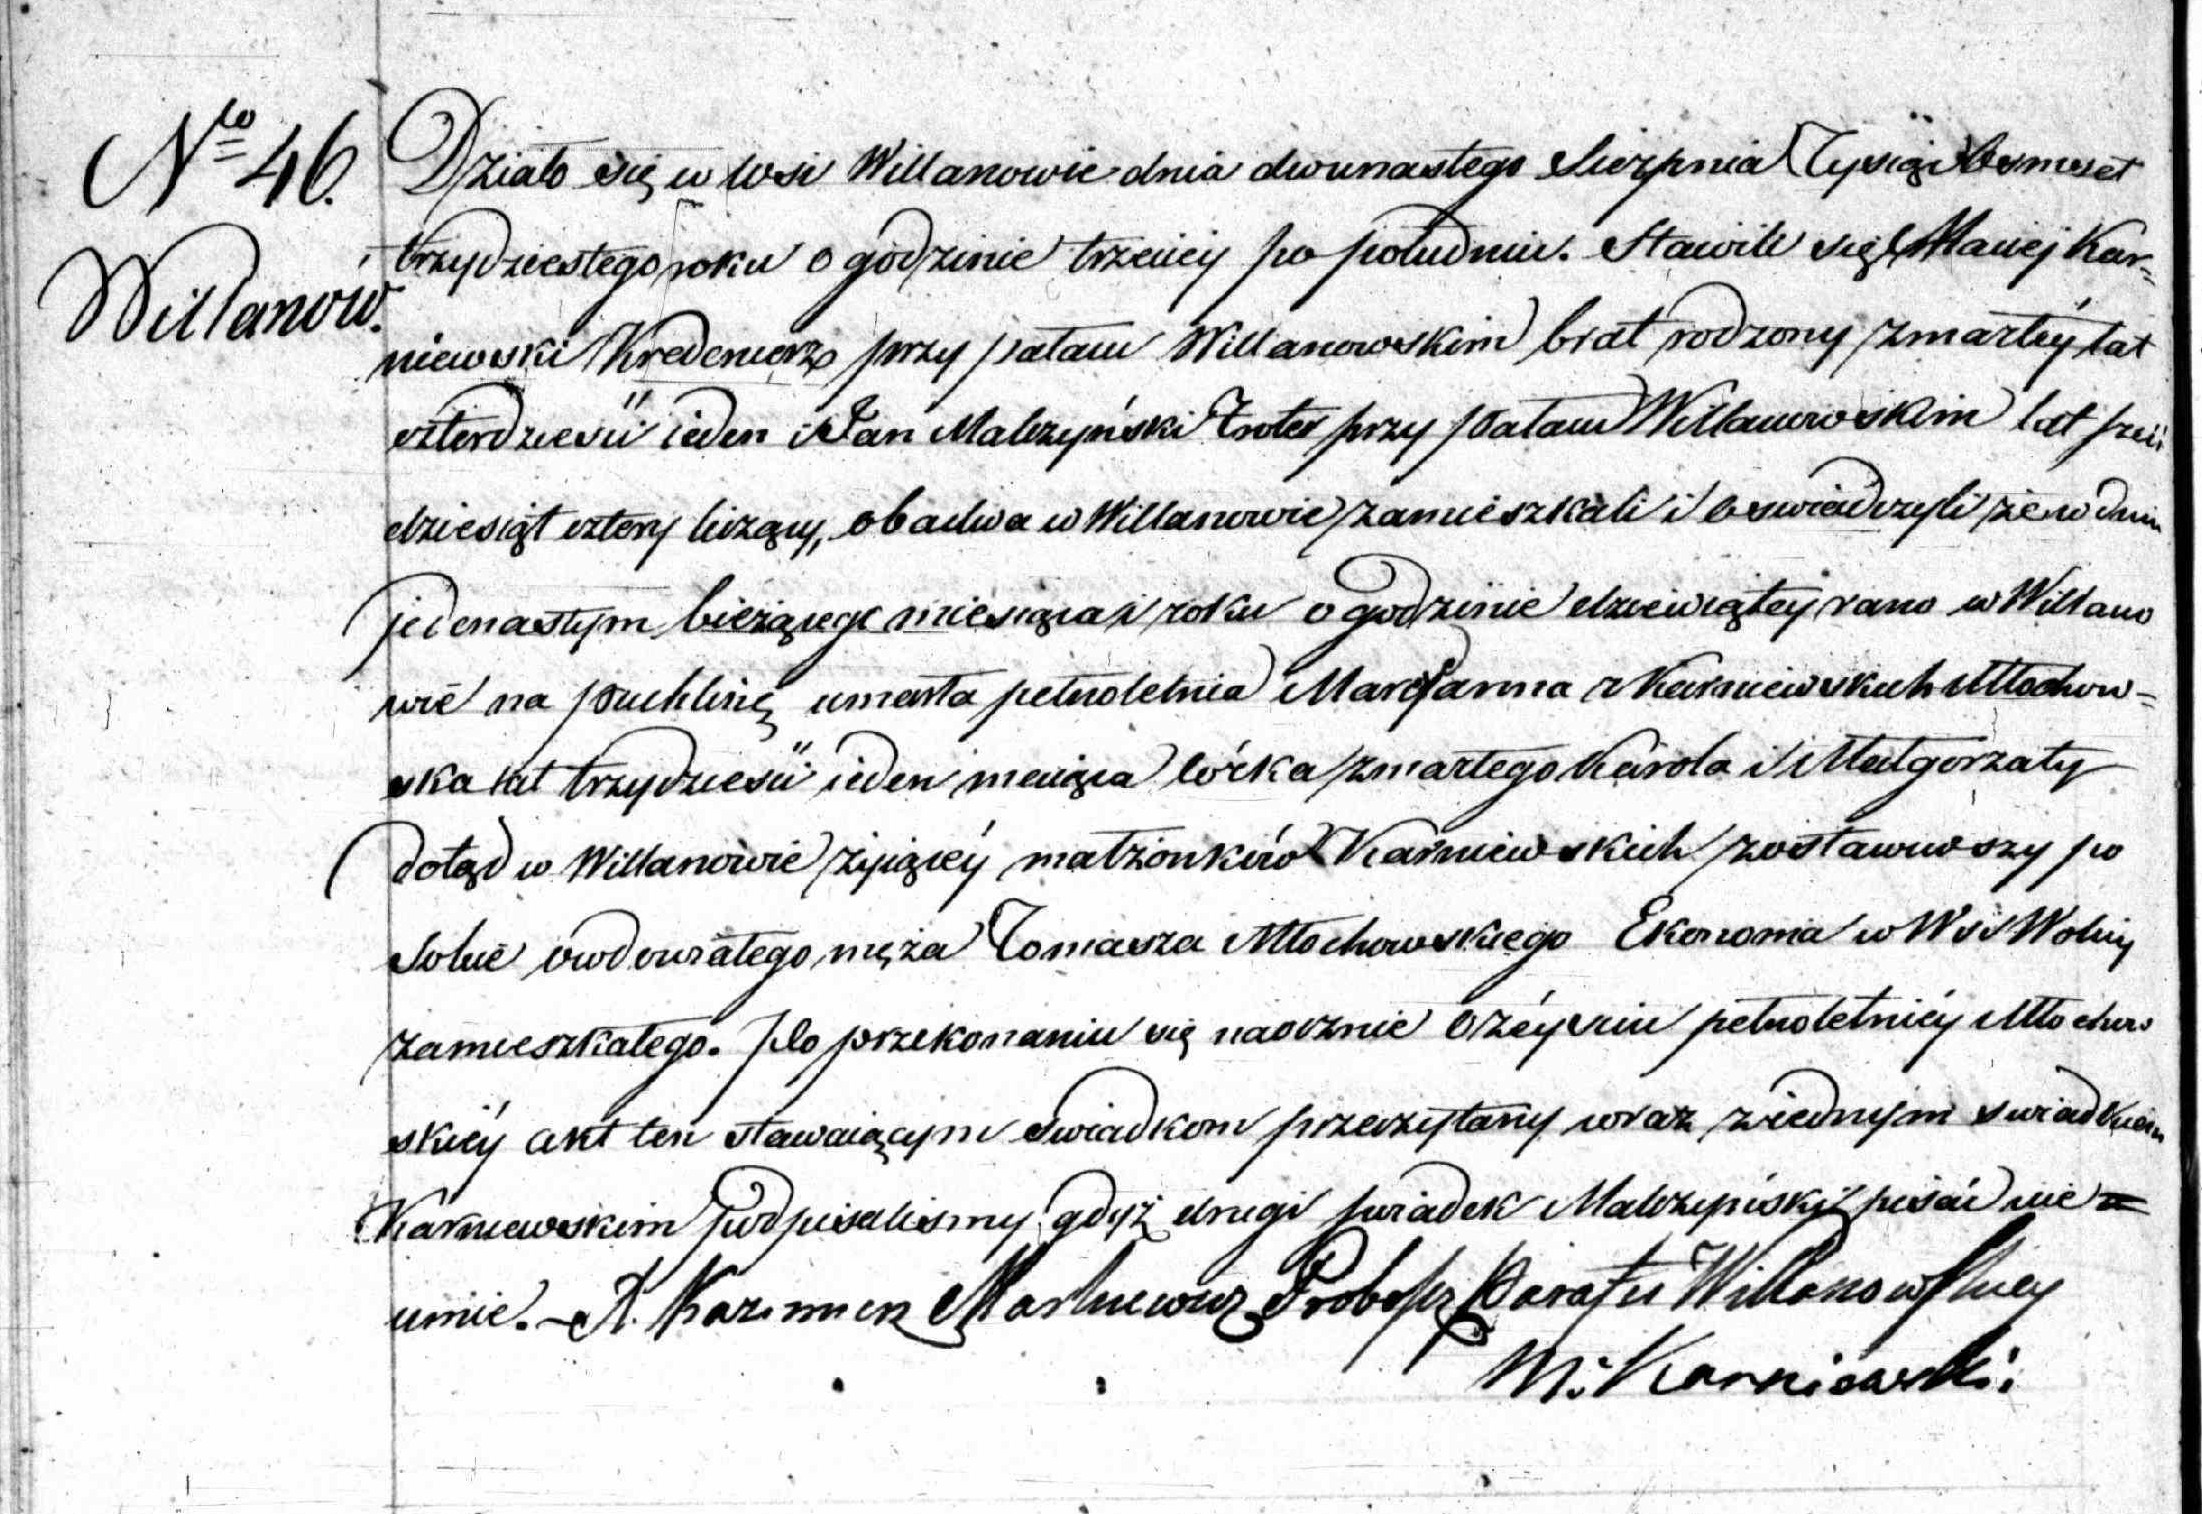 N<sup>ro</sup> 46.
Willanów.
Działo się w Wsi Willanowie dnia dwunastego Sierpnia Tysiąc Osmset
trzydziestego roku o godzinie trzeciey po południu. Stawili się Maciej Kar=
niewski Kredencerz przy pałacu Willanowskim brat rodzony zmarłéy lat
czterdzieści ieden i Jan Malczyński przy Pałacu Willanowskim lat pięć
dziesiąt cztery liczący, obadwa w Willanowie zamieszkali i oswiadczyli że w dniu
jedenastym bieżącego miesiąca i roku o godzinie dziewiątey rano w Willano
wie na puchlinę umarła pełnoletnia Maryanna z Karniewskich Młochow=
ska lat trzydzieści ieden maiąca córka zmarłego Karola i Małgorzaty
dotąd w Willanowie żyiącéy małżonków Karniewskich zostawiwszy po
Sobie owdowiałego męża Tomasza Młochowskiego Ekonoma w Wsi Wolicy
zamieszkałego. Po przekonaniu się naocznie o zéyściu pełnoletniéy Młochow
skiéy akt ten stawaiącym swiadkom przeczytany wraz z iednym swiadkiem
Karniewskim podpisalismy gdyż drugi swiadek Malczyński pisać nie =
umie. – X. Kazimierz Proboszcz Parafii Willanowskiey
M: Karniewski: